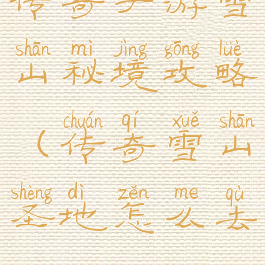 传奇手游雪
shān mì jìng gōng lüè
山秘境攻略
chuán qí xuě shān
（传奇雪山
shèng dì zěn me qù
圣地怎么去